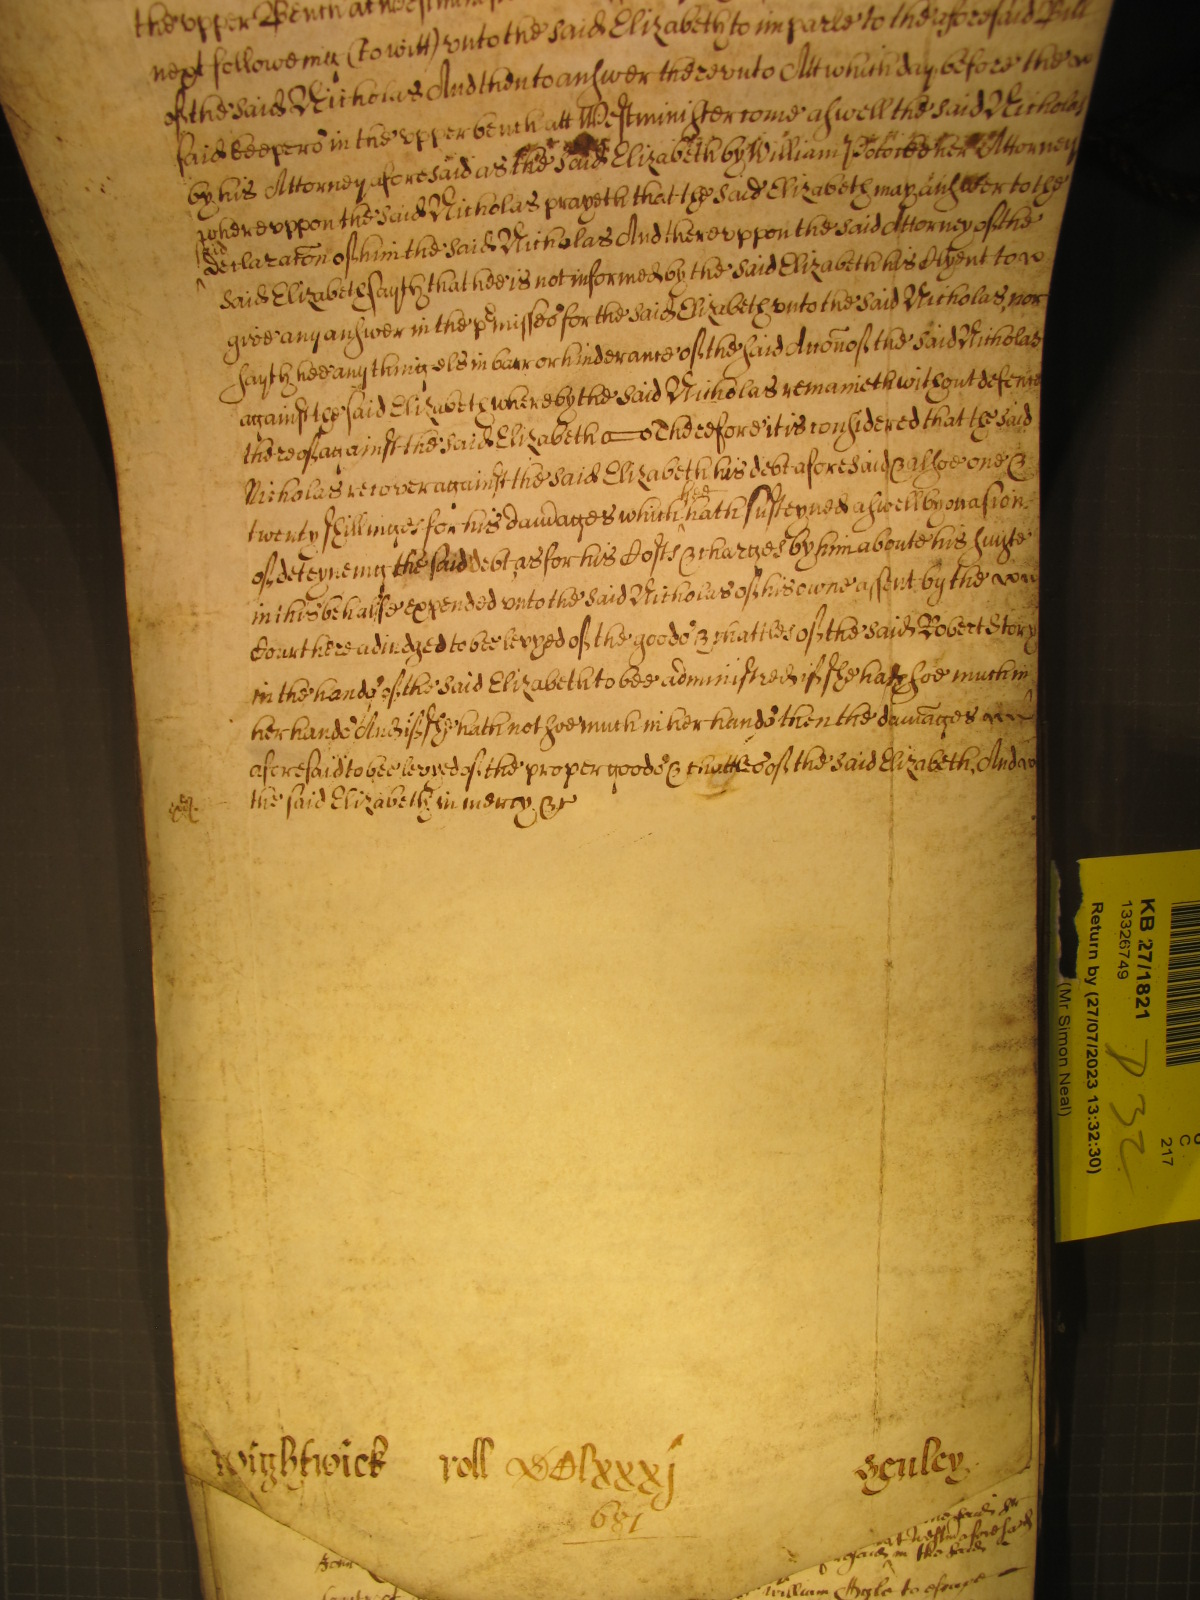 the upper Bench at Westminster
next followeing (to witt) unto the said Elizabeth to imparle to the aforesaid Bill
of the said Nicholas And then to answer thereunto Att which day before the
said keepers in the upper bench att Westminster come aswell the said Nicholas
by his Attorney aforesaid as the said Elizabeth by William her Attorney
whereuppon the said Nicholas prayeth that the said Elizabeth may answer to the
said
declaracõn of him the said Nicholas And thereuppon the said Attorney of the
said Elizabeth sayth that hee is not informed by the said Elizabeth his Clyent to
give any answer in the p̃misses for the said Elizabeth unto the said Nicholas, nor
sayth hee any thing els in barr or hinderance of the said Accõn of the said Nicholas
against the said Elizabeth whereby the said Nicholas remaineth without defence
thereof against the said Elizabeth Therefore it is considered that the said
Nicholas recover against the said Elizabeth his debt aforesaid & alsoe one &
twenty shillinges for his damages which hee hath susteyned aswell by occasion
of deteyneing the said debt as for his Costs & charges by him aboute his suyte
in his behalfe expended unto the said Nicholas of his owne assent by the
Court here adiudged to bee levyed of the goods & chattles of the said Robert Story
in the hands of the said Elizabeth to bee administred if she hath soe much in
her hands And if she hath not soe much in her hands then the damages
aforesaid to bee levyed of the proper goods & chattles of the said Elizabeth, And
the said Elizabeth in mercy &c
wightwick roll DClxxxj
681
William to escape
KB 27/1821
13326749
Return by (27/07/2023 13:32:30)
(Mr Simon Neal)
C
217